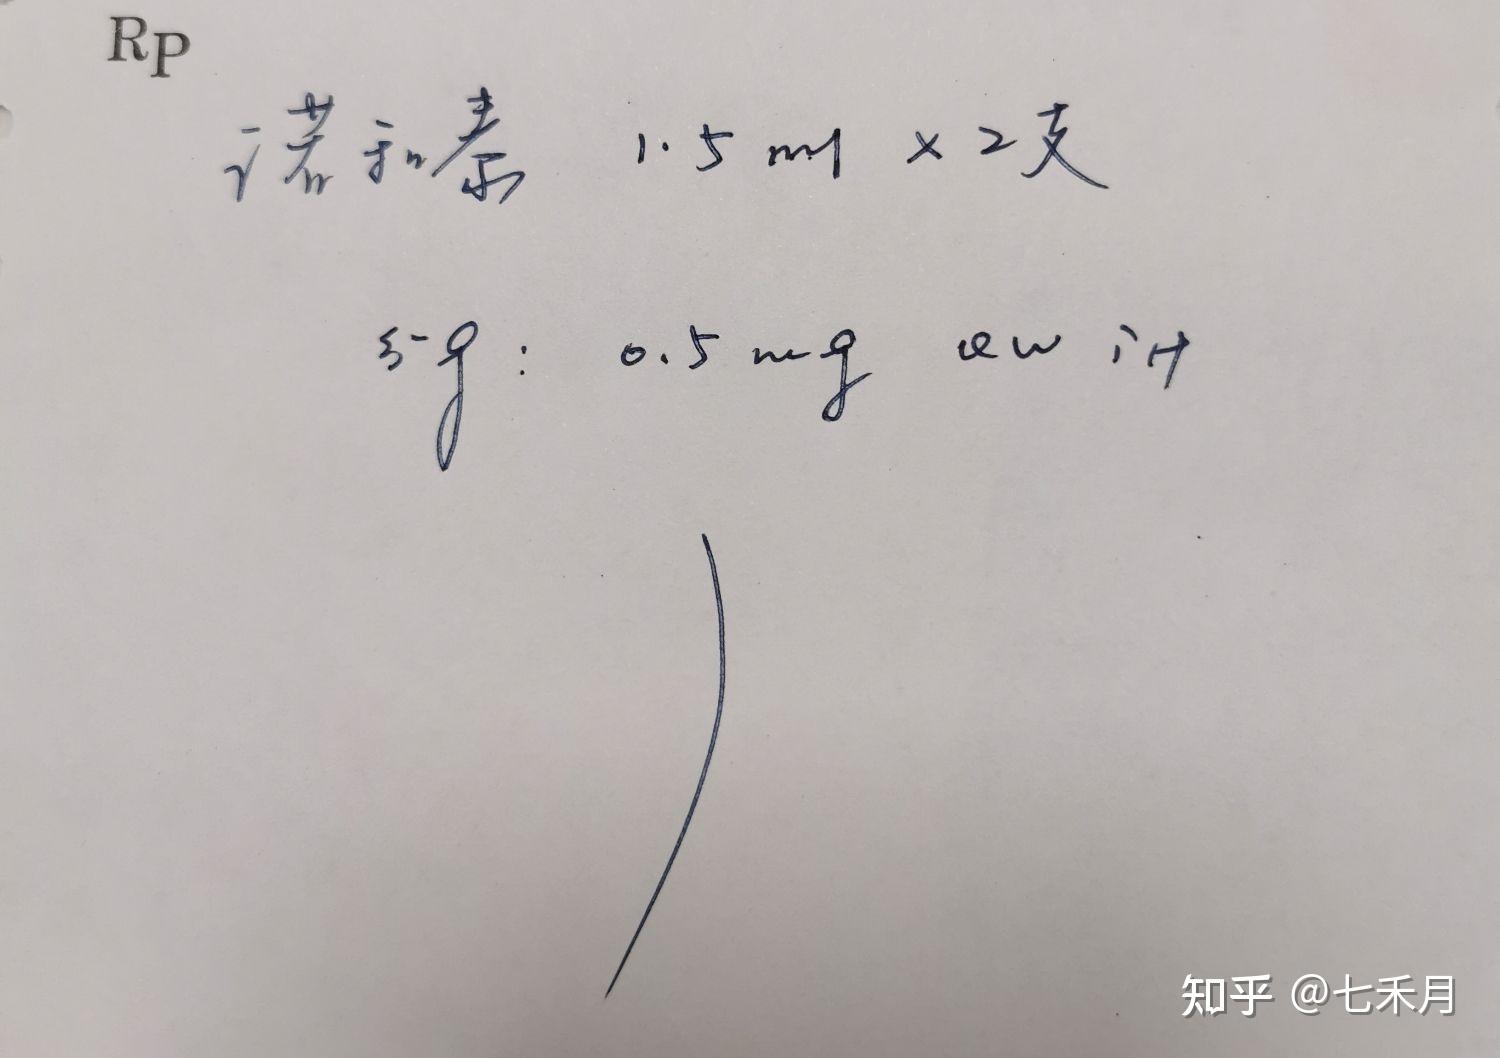 RP
诺和泰 1.5ml ×2支
sig: 0.5mg qw iH
知乎 @七禾月